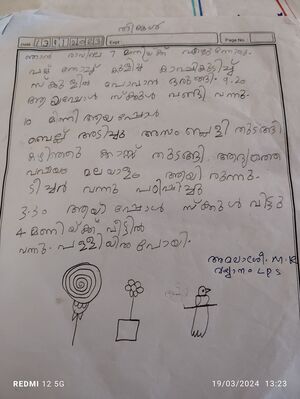 തിങ്കൾ
Date 13 1 2025 Expt
Page No.
ഞാൻ രാവിലെ 7 മണിക്ക്
പല്ല് തേച്ച് കുളിച്ച് കാപ്പികുടിച്ച്
സ്കൂളിൽ പോവാൻ ഒരുങ്ങി. 9.20
ആയപ്പോൾ സ്കൂൾ വണ്ടി വന്നു.
10 മിനി ആയപ്പോൾ
ബെല്ല് അടിച്ചു അസംബ്ലി തുടങ്ങി
കഴിഞ്ഞു ക്ലാസ്സ് തുടങ്ങി. ആദ്യത്തെ
മലയാളം ആയിരുന്നു.
ടീച്ചർ വന്നു പഠിപ്പിച്ചു
3.30 ആയപ്പോൾ സ്കൂൾ വിട്ടു
4 മണിയ്ക്കു വീട്ടിൽ
വന്നു. പള്ളിയിൽ പോയി.
M.R
L P S
REDMI 12 5G
19/03/2024 13:23